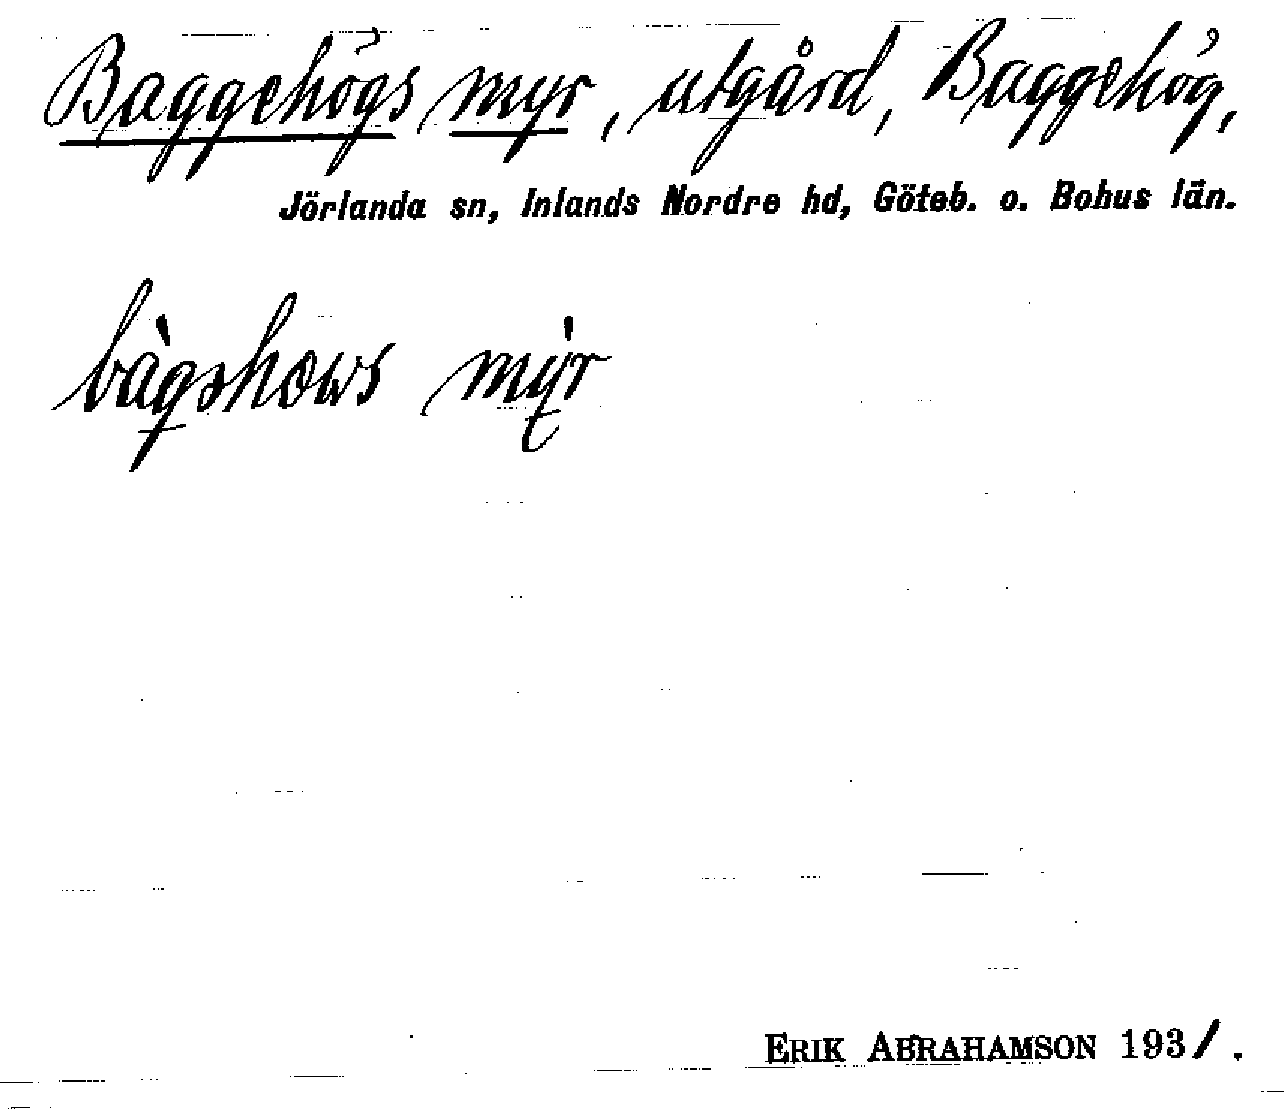 Baggehögs myr, utgård, Baggehög,
Jörlanda sn, Inlands Nordre hd, Göteb. o. Bohus län.
bàgshœws mỳr
ERIK ABRAHAMSON 1931.